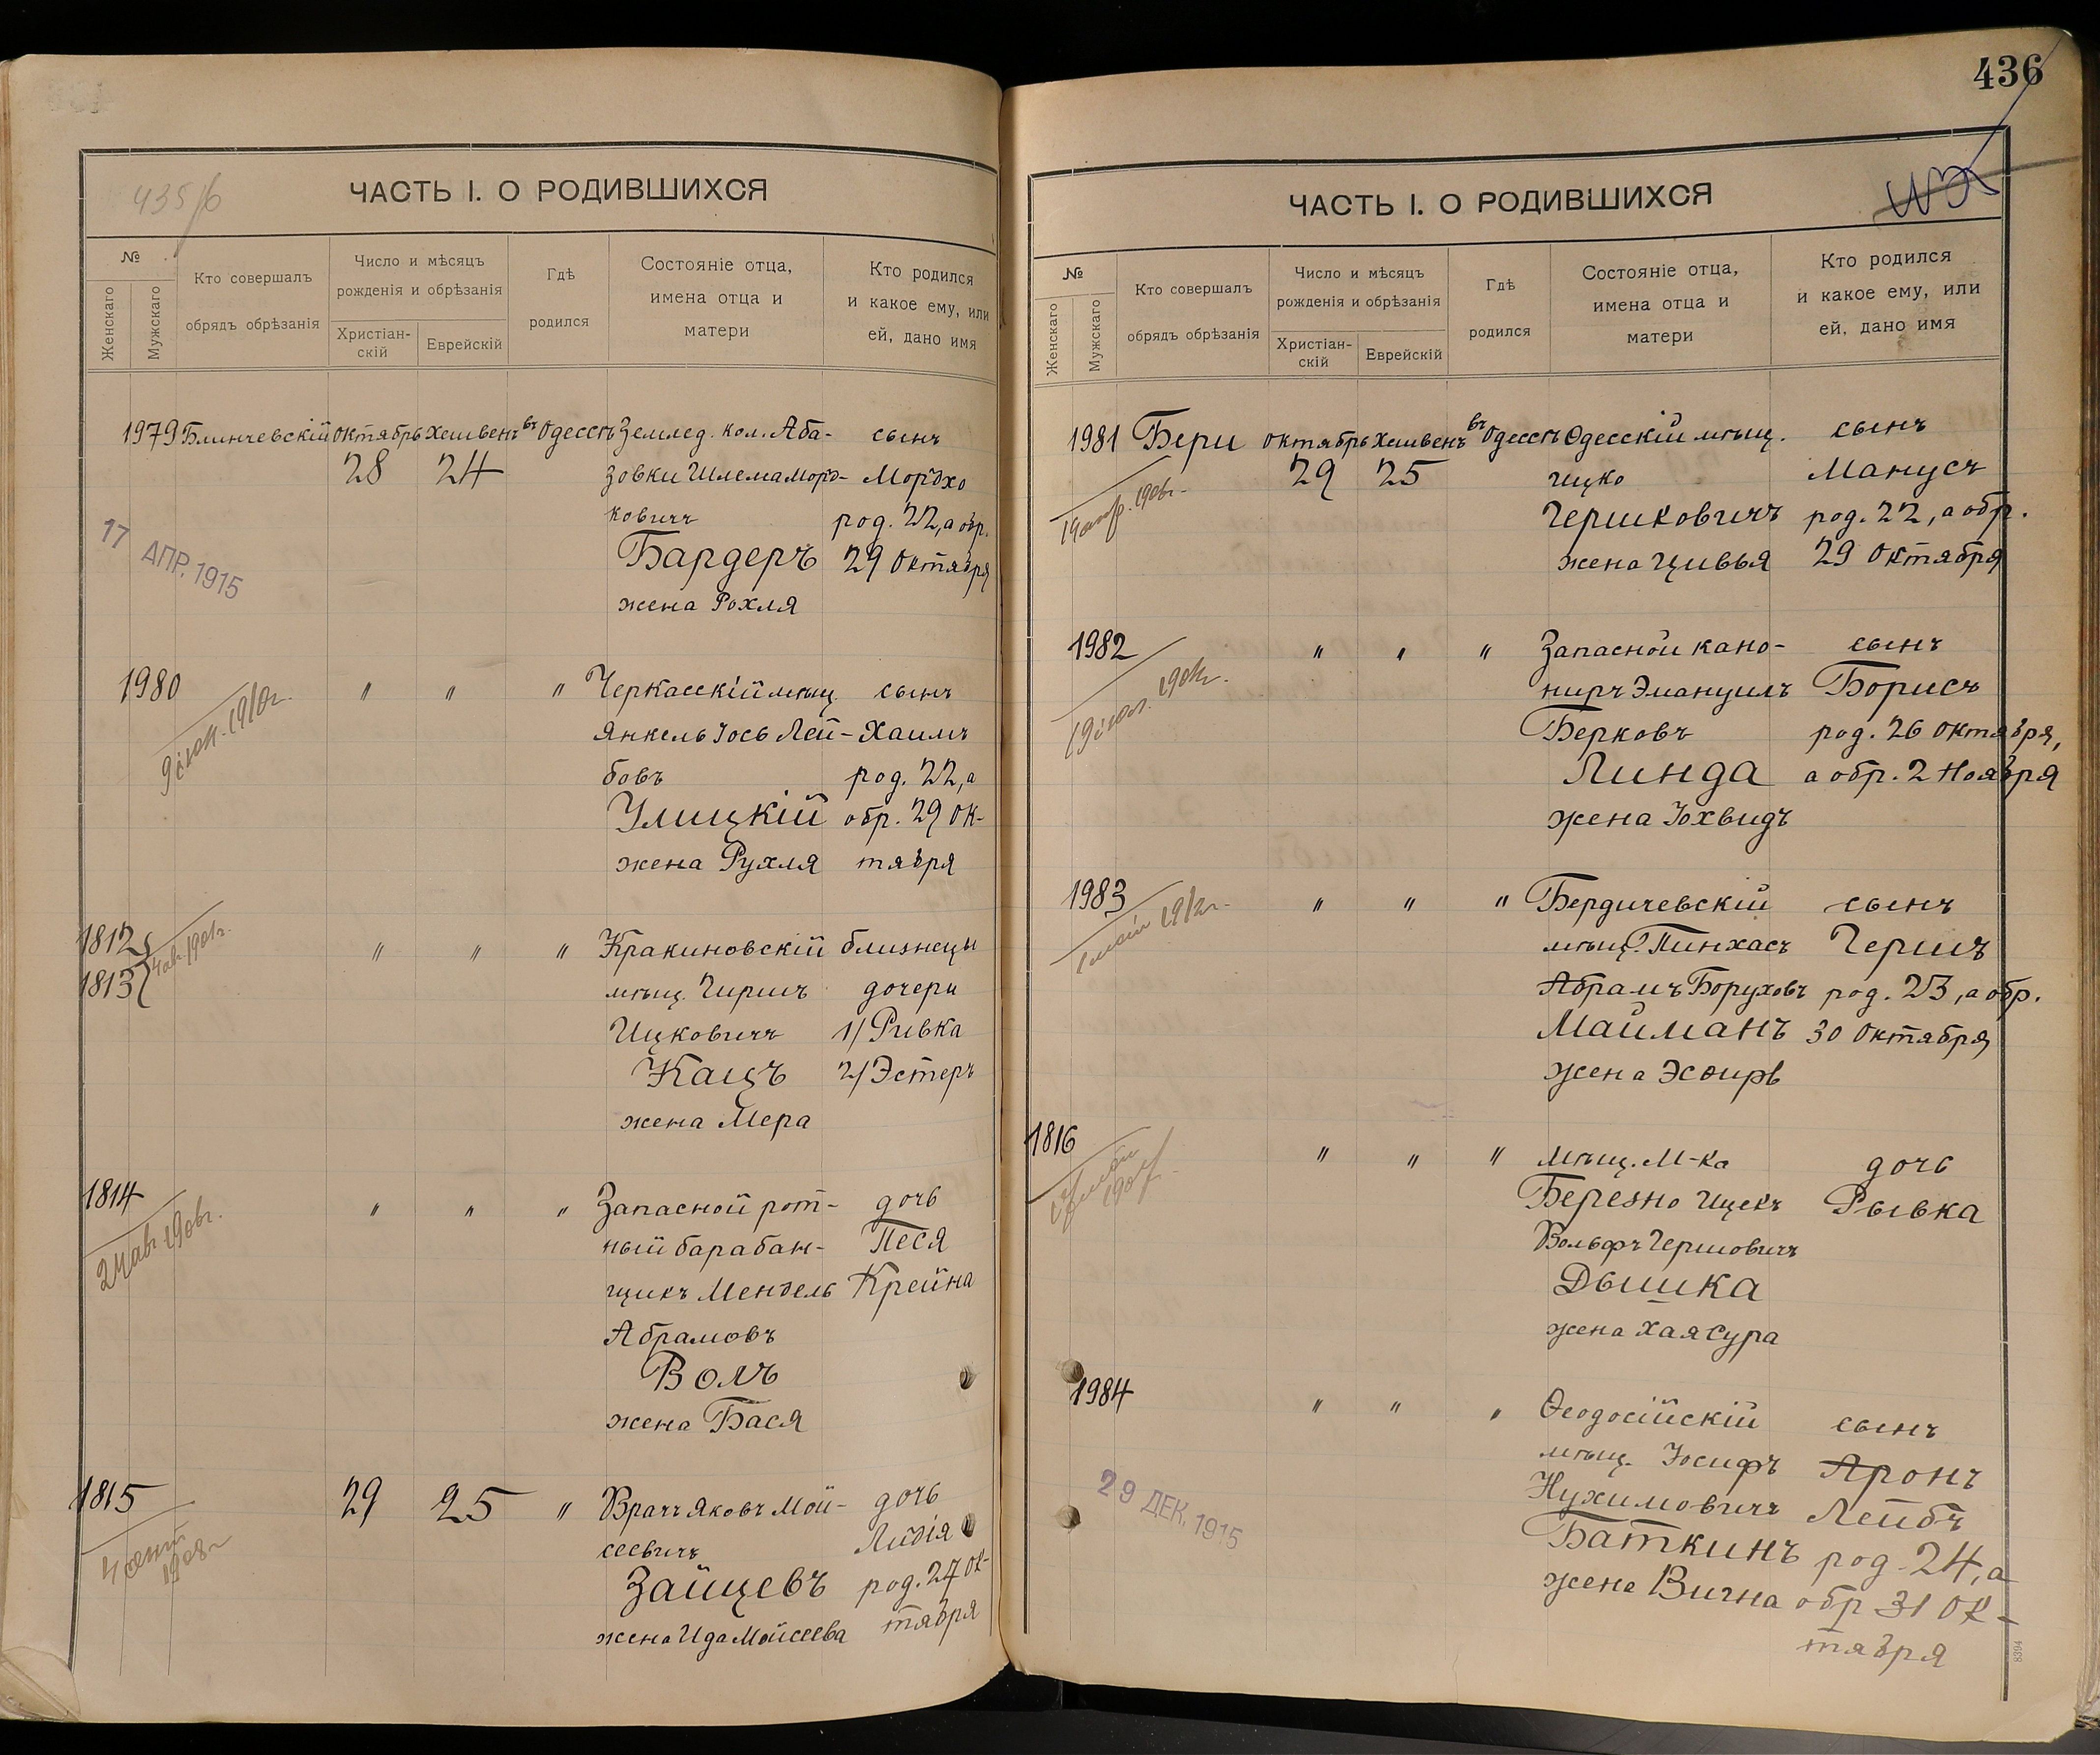 435/б
ЧАСТЬ I. О РОДИВШИХСЯ
№
Женскаго
Мужскаго
Кто совершалъ
обрядъ обрѣзанія
Число и мѣсяцъ
рожденія и обрѣзанія
Христіан-
скій
Еврейскій
Гдѣ
родился
Состояніе отца,
имена отца и
матери
Кто родился
и какое ему, или
ей, дано имя
1979 Блинчевскій Октябрь Хешвенъ въ Одессѣ Землед. кол. Аба- сынъ
28 24 зовки Шлема Морд- Мордхо
ковичъ род. 22, а обр.
17 АПР. 1915
Бардеръ 29 Октября
жена Рохля
1980 " " " Черкасскій мѣщ. сынъ
1910г.
Янкель Іось Лей- Хаимъ
бовъ род. 22, а
Улицкій обр. 29 Ок-
жена Рухля тября
1812 " " " Кракиновскій близнецы
1813 мѣщ. Гиршъ дочери
Ицковичъ 1/ Ривка
Кацъ 2/ Эстеръ
жена Мера
1814 " " " Запасной рот- дочь
24 авг. 1906г.
ный барабан- Песя
щикъ Мендель Крейна
Абрамовъ
Волъ
жена Бася
1815 29 25 " Врачъ Яковъ Мой- дочь
4 сент.
1908г
сеевичъ Лидія
Зайцевъ род. 27 Ок-
жена Ида Мойсеева тября
436
ЧАСТЬ I. О РОДИВШИХСЯ
№
Женскаго
Мужскаго
Кто совершалъ
обрядъ обрѣзанія
Число и мѣсяцъ
рожденія и обрѣзанія
Христіан-
скій
Еврейскій
Гдѣ
родился
Состояніе отца,
имена отца и
матери
Кто родился
и какое ему, или
ей, дано имя
1981 Бери Октябрь Хешвенъ въ Одессѣ Одесскій мѣщ. сынъ
29 25 Ицко Манусъ
Гершковичъ род. 22, а обр.
жена Цивья 29 Октября
1982 " " " Запасной кано- сынъ
ниръ Эмануилъ Борисъ
Берковъ род. 26 Октября,
Линда а обр. 2 Ноября
жена Іохвидъ
1983 " " " Бердичевскій сынъ
1912г.
мѣщ. Пинхасъ Гершъ
Абрамъ Боруховъ род. 23, а обр.
Майманъ 30 Октября
жена Эсѳирь
1816 " " " мѣщ. М-ка дочь
Березно Ицекъ Рывка
Вольфъ Гершовичъ
Дышка
жена Хая Сура
1984 " " " Ѳеодосійскій сынъ
мѣщ. Іосифъ Аронъ
Нухимовичъ Лейбъ
29 ДЕК. 1915
Баткинъ род. 24, а
жена Вигна обр 31 Ок-
тября
8394